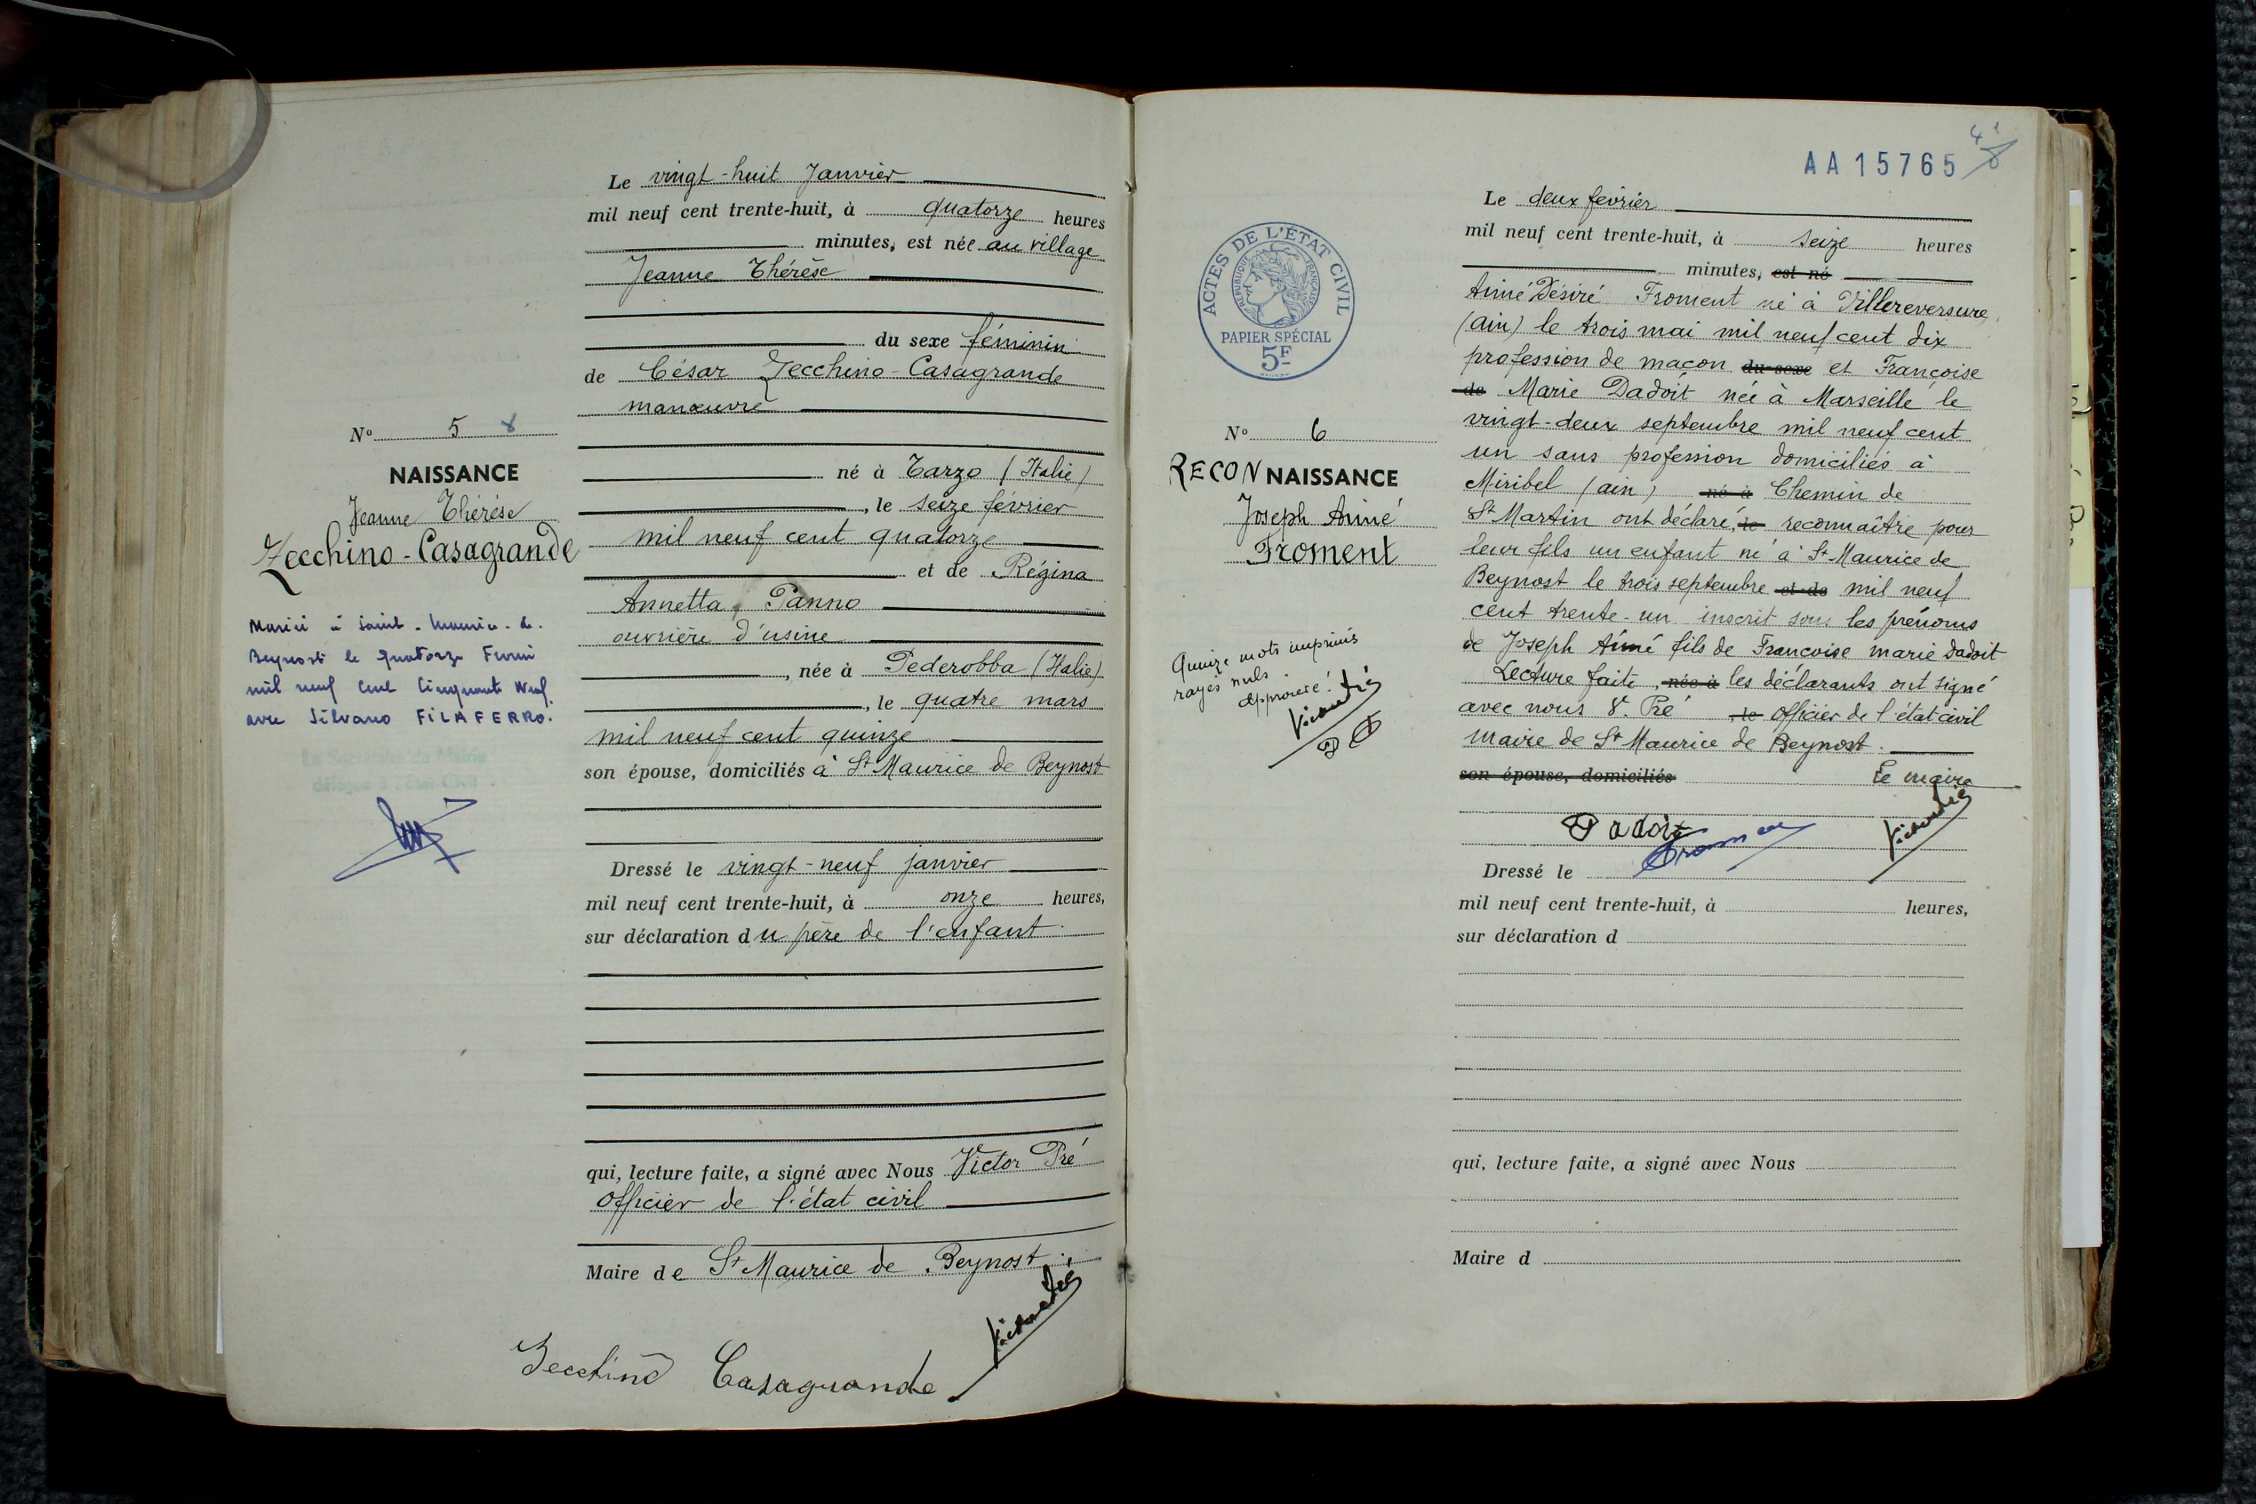 Le vingt-huit Janvier
mil neuf cent trente-huit, à quatorze heures
minutes, est née au village
Jeanne Thérèse
du sexe féminin
de César Zecchino-Casagrande
manœuvre
né à Tarzo (Italie)
, le seize février
mil neuf cent quatorze
et de Régina
Annetta Panno
ouvrière d'usine
, née à Pederobba (Italie)
, le quatre mars
mil neuf cent quinze
son épouse, domiciliés à St Maurice de Beynost
Dressé le vingt-neuf janvier
mil neuf cent trente-huit, à onze heures,
sur déclaration du père de l'enfant.
qui, lecture faite, a signé avec Nous Victor Pré
Officier de l'état civil
Maire de St Maurice de Beynost.
Zecchino Casagrande
No 5 8
NAISSANCE
Jeanne Thérèse
Zecchino-Casagrande
Marié à Saint-Maurice-de-
Beynost le quatorze
mil neuf cent cinquante neuf
avec Silvano FILAFERRO.
AA15765
ACTES DE L'ÉTAT CIVIL
RÉPUBLIQUE FRANÇAISE
PAPIER SPÉCIAL
5F
No 6
RECONNAISSANCE
Joseph Aimé
Froment
Quinze mots imprimés
rayés nuls
approuvé!
Le deux février
mil neuf cent trente-huit, à seize heures
minutes, est né
Aimé Désiré Froment né à Villereversure
(ain) le trois mai mil neuf cent dix
profession de maçon du sexe et Françoise
de Marie Dadoit née à Marseille le
vingt-deux septembre mil neuf cent
un sans profession domiciliés à
Miribel (ain) né à Chemin de
St Martin ont déclaré, le reconnaître pour
leur fils un enfant né à St Maurice de
Beynost le trois septembre et de mil neuf
cent trente-un inscrit sous les prénoms
de Joseph Aimé fils de Françoise marie Dadoit
Lecture faite, née à les déclarants ont signé
avec nous V. Pré , le officier de l'état civil
Maire de St Maurice de Beynost.
son épouse, domiciliés Le maire
Dadoit
Dressé le
mil neuf cent trente-huit, à heures,
sur déclaration d
qui, lecture faite, a signé avec Nous
Maire d